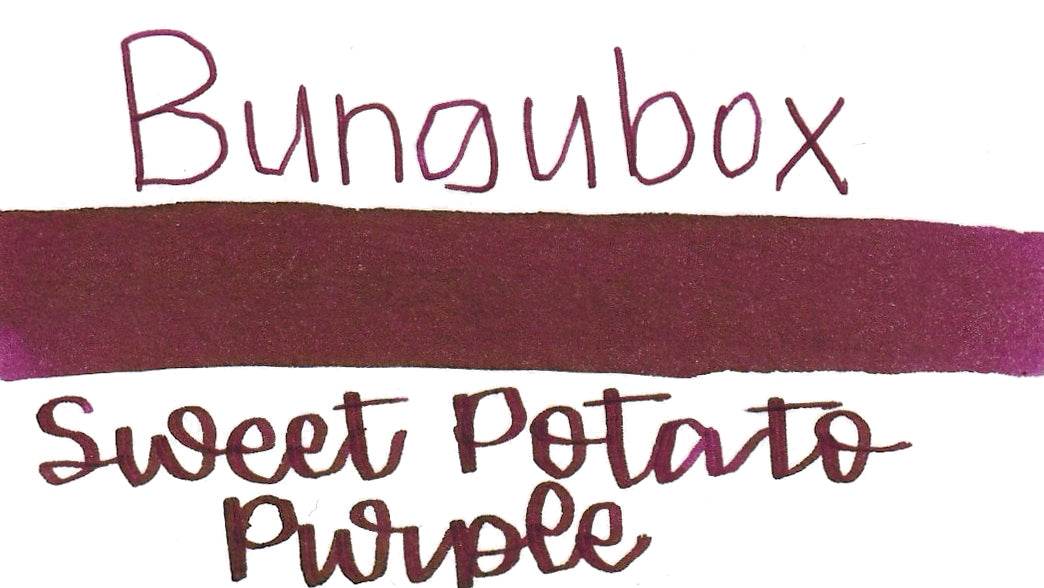 Bungubox
Sweet Potato
Purple